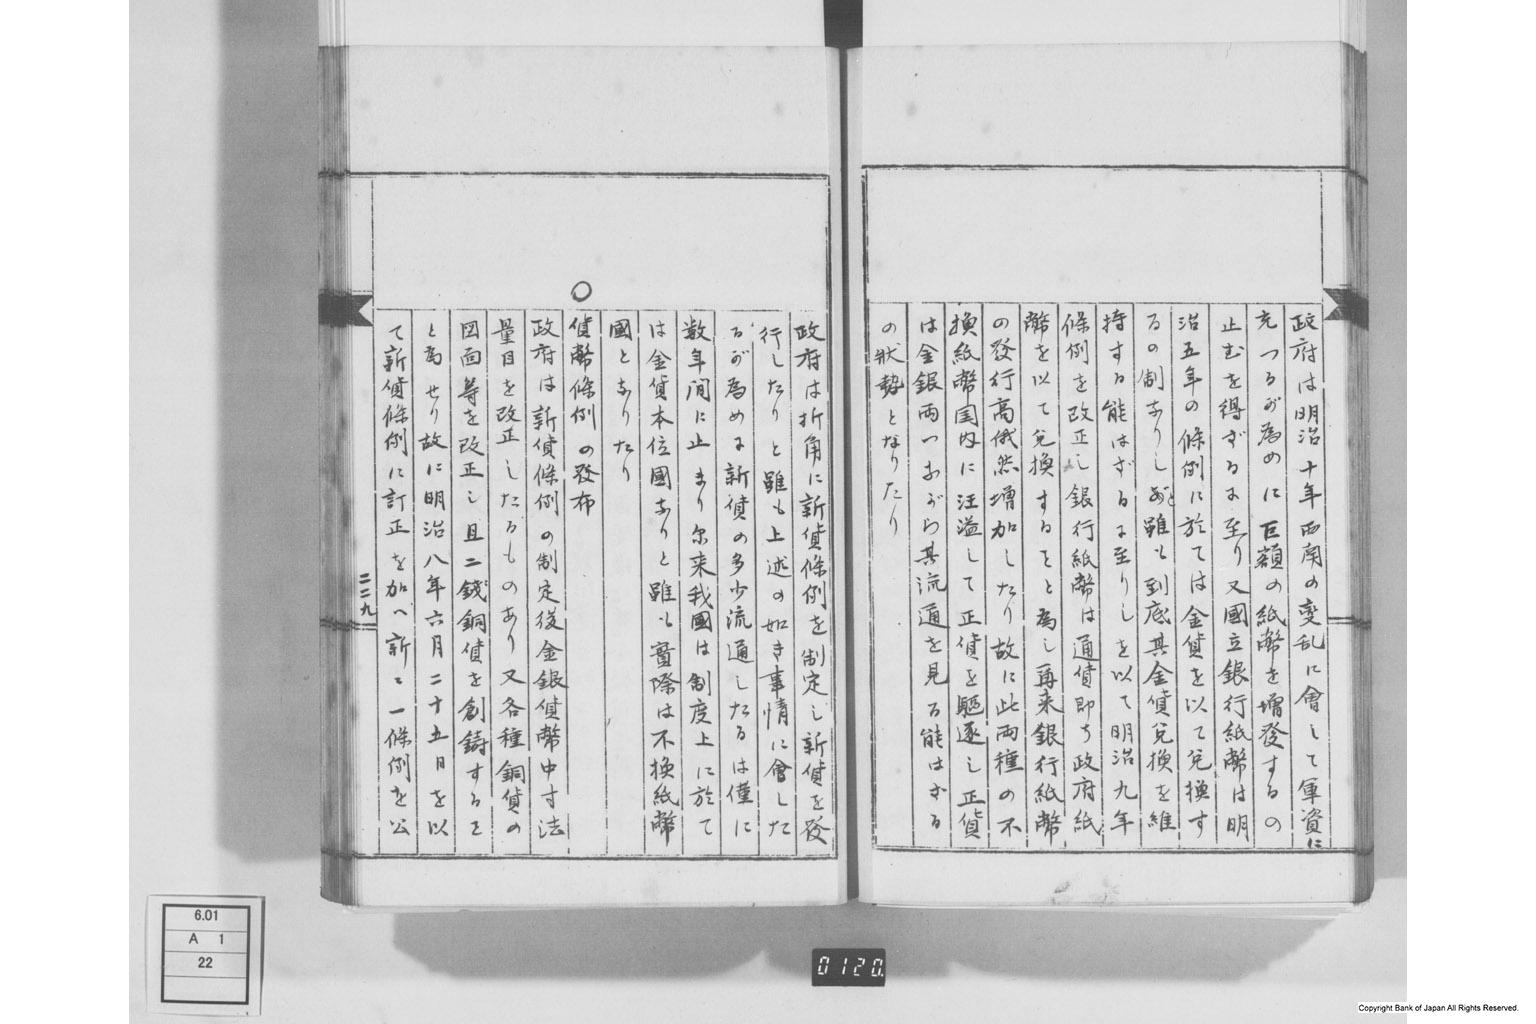 政府は明治十年西南の変乱に會して軍資に
充つるが為めに巨額の紙幣を増發するの
止むを得ざるに至り又國立銀行紙幣は明
治五年の條例に於ては金貨を以て兌換す
るの制なりしと雖も到底其金貨兌換を維
持する能はざるに至りしを以て明治九年
條例を改正し銀行紙幣は通貨即ち政府紙
幣を以て兌換することと為し再来銀行紙幣
の發行高俄然増加したり故に此両種の不
換紙幣国内に汪溢して正貨を驅逐し正貨
は金銀両つながら其流通を見る能はざる
の状勢となりたり
政府は折角に新貨條例を制定し新貨を發
行したりと雖も上述の如き事情に會した
るが為めに新貨の多少流通したるは僅に
数年間に止まり尓来我國は制度上に於て
は金貨本位國なりと雖も實際は不換紙幣
國となりたり
○
貨幣條例の發布
政府は新貨條例の制定後金銀貨幣中寸法
量目を改正したるものあり又各種銅貨の
図面等を改正し且二錢銅貨を創鋳すること
と為せり故に明治八年六月二十五日を以
て新貨條例に訂正を加へ新に一條例を公
二二九
6.01
A 1
22
0120
Copyright Bank of Japan All Rights Reserved.